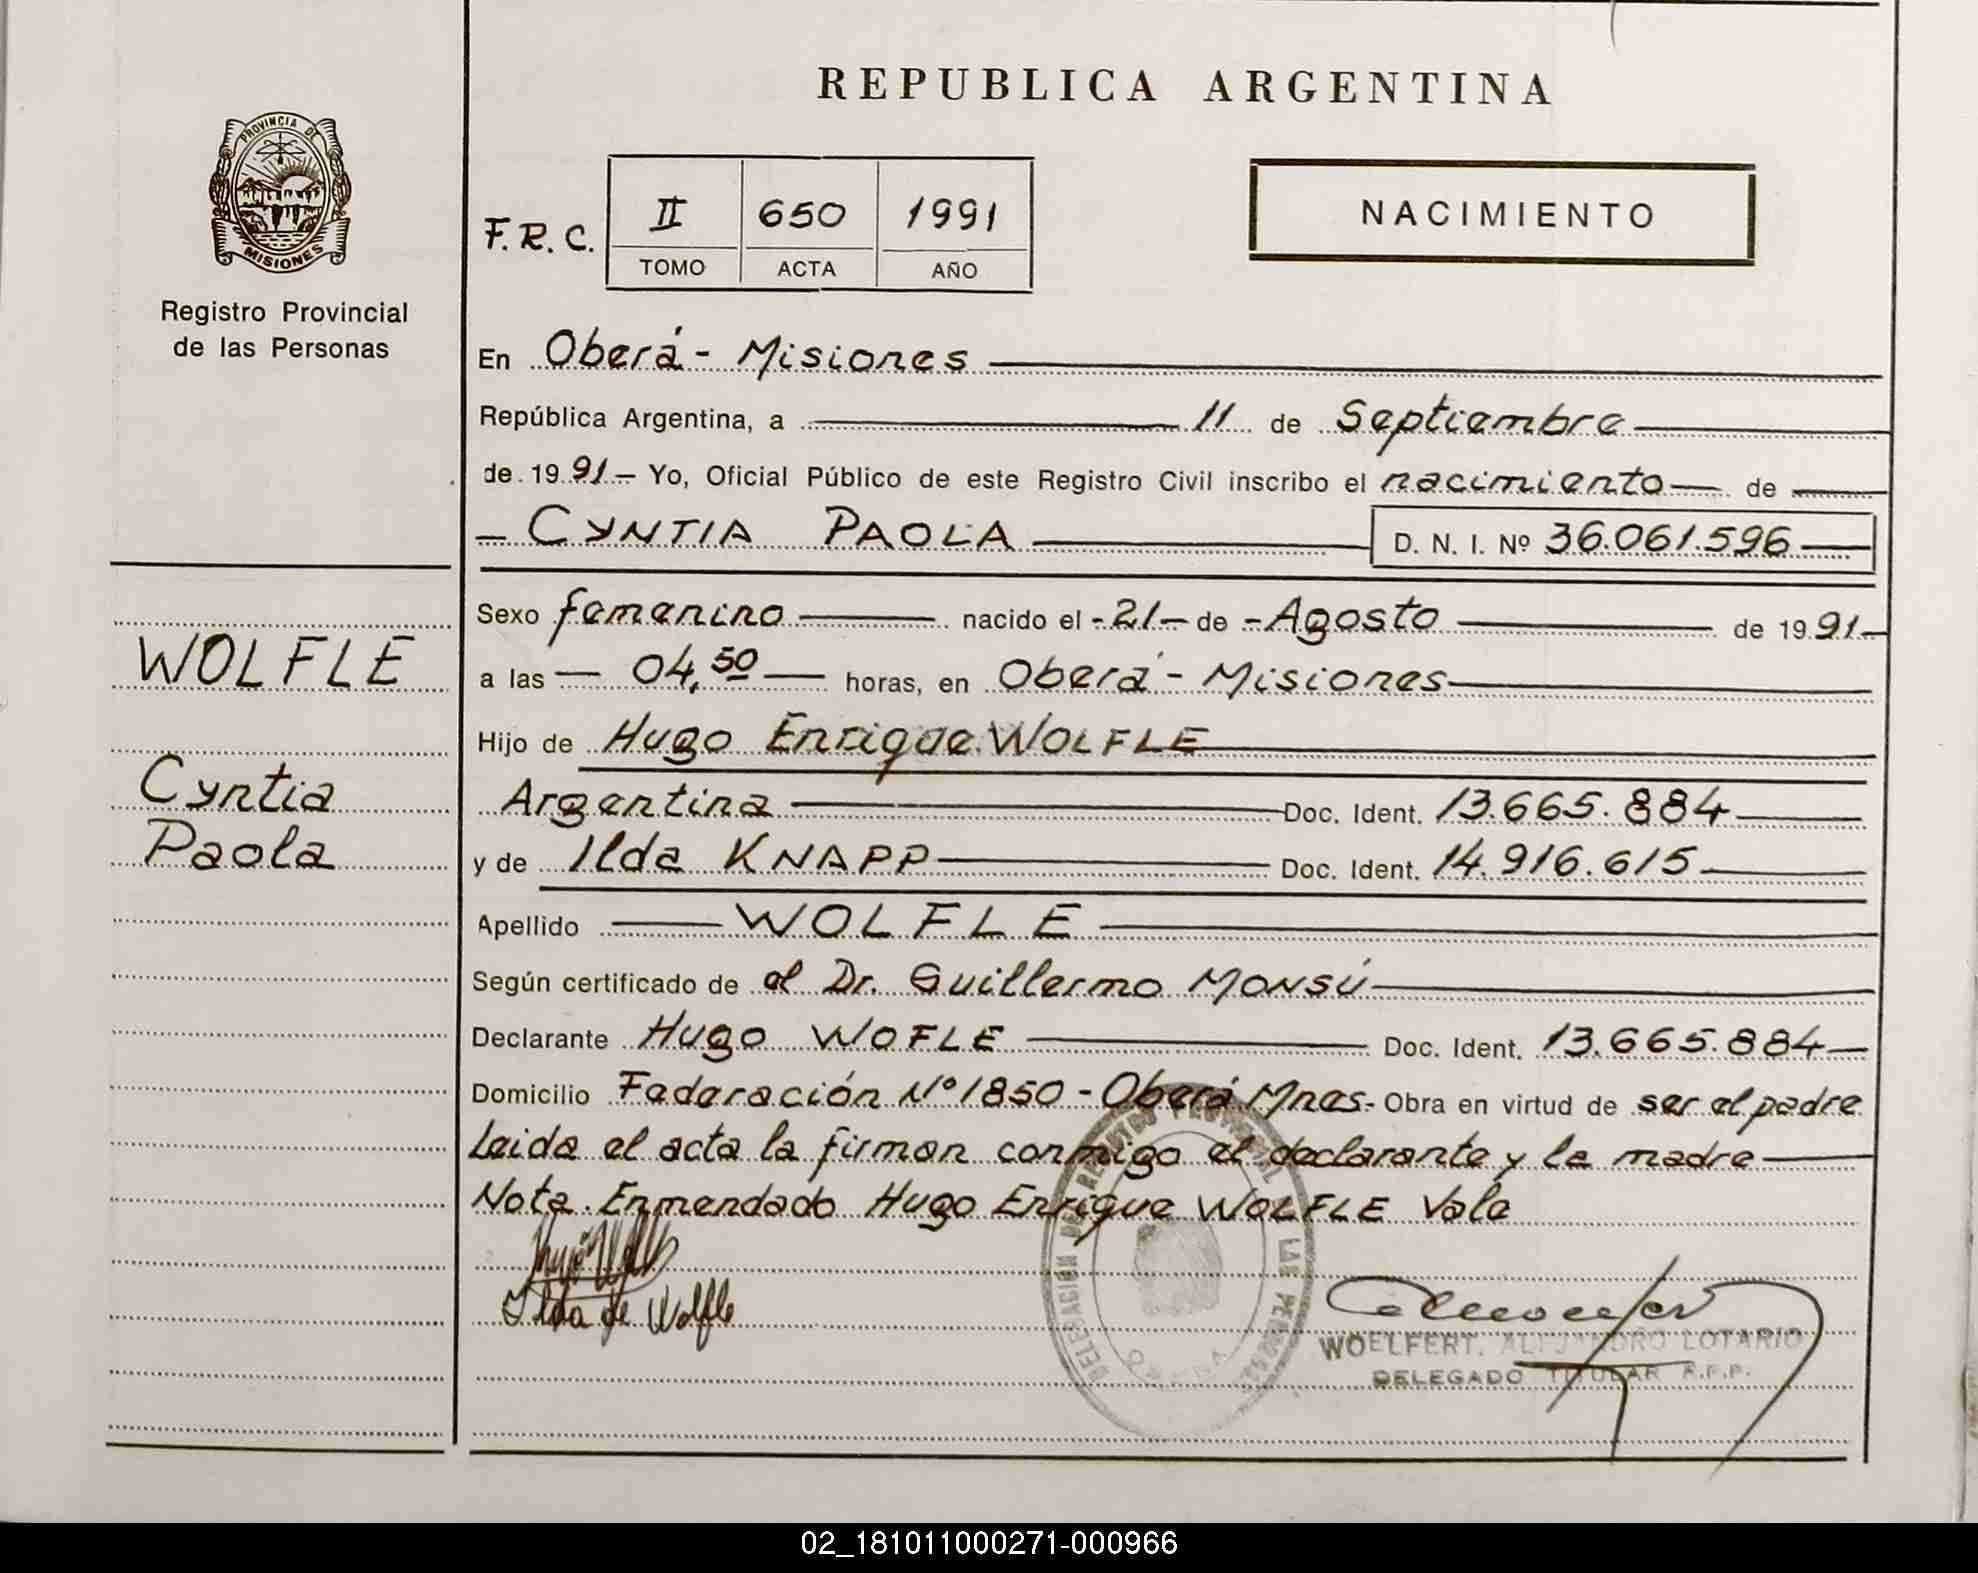 REPUBLICA ARGENTINA
PROVINCIA DE
MISIONES
Registro Provincial
de las Personas
F.R.C. II 650 1991
TOMO ACTA AÑO
NACIMIENTO
En Oberá - Misiones
República Argentina, a 11 de Septiembre
de 1991 - Yo, Oficial Público de este Registro Civil inscribo el nacimiento de
CYNTIA PAOLA D. N. I. Nº 36.061.596
Sexo femenino nacido el -21- de - Agosto de 1991-
a las 04,50 horas, en Oberá - Misiones
Hijo de Hugo Enrique WOLFLE
Argentina Doc. Ident. 13.665.884
y de Ilda KNAPP Doc. Ident. 14.916.615
Apellido WOLFLE
Según certificado de el Dr. Guillermo MONSÚ
Declarante Hugo WOFLE Doc. Ident. 13.665.884
Domicilio Federación Nº 1850 - Oberá Mnes- Obra en virtud de ser el padre
Leida el acta la firman conmigo el declarante y la madre
Nota. Enmendado Hugo Enrique WOLFLE Vale
Ilda de Wolfle
WOELFERT, ALEJANDRO LOTARIO
DELEGADO TITULAR R.P.P.
WOLFLE
Cyntia
Paola
02_181011000271-000966